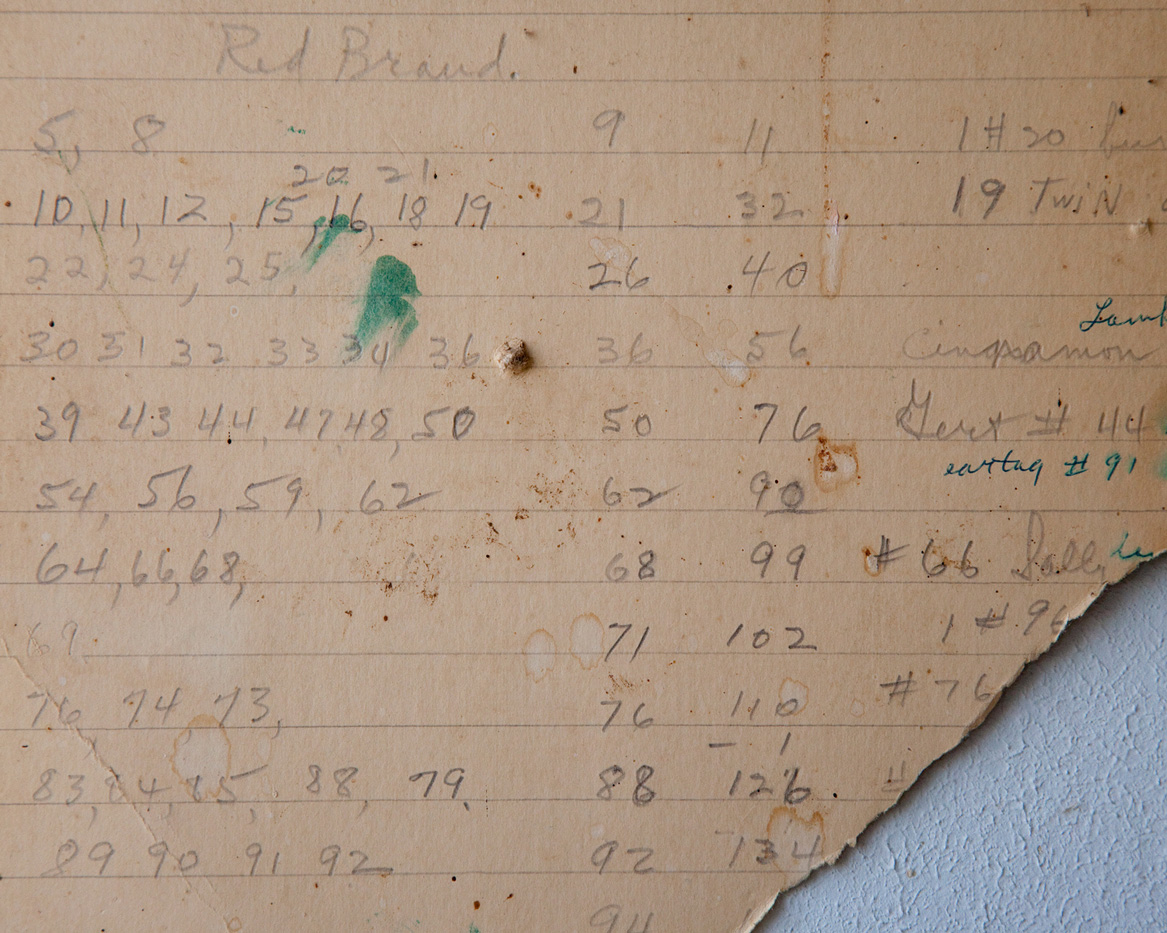 Red Brand.
5, 8 9 11 1 # 20
20 21
10, 11, 12, 15, 16, 18 19 21 32 19 TwiN
22, 24, 25, 26 40
Lamb
30 31 32 33 34 36 36 56
39 43 44, 47 48, 50 50 76 Gert # 44
eartag # 91
54, 56, 59, 62 62 90
64, 66, 68, 68 99 # 66 Sally
69 71 102 1 # 96
76 74 73, 76 110 # 76
- 1
83, 84, 85, 88, 79, 88 126 #
89 90 91 92 92 134
94